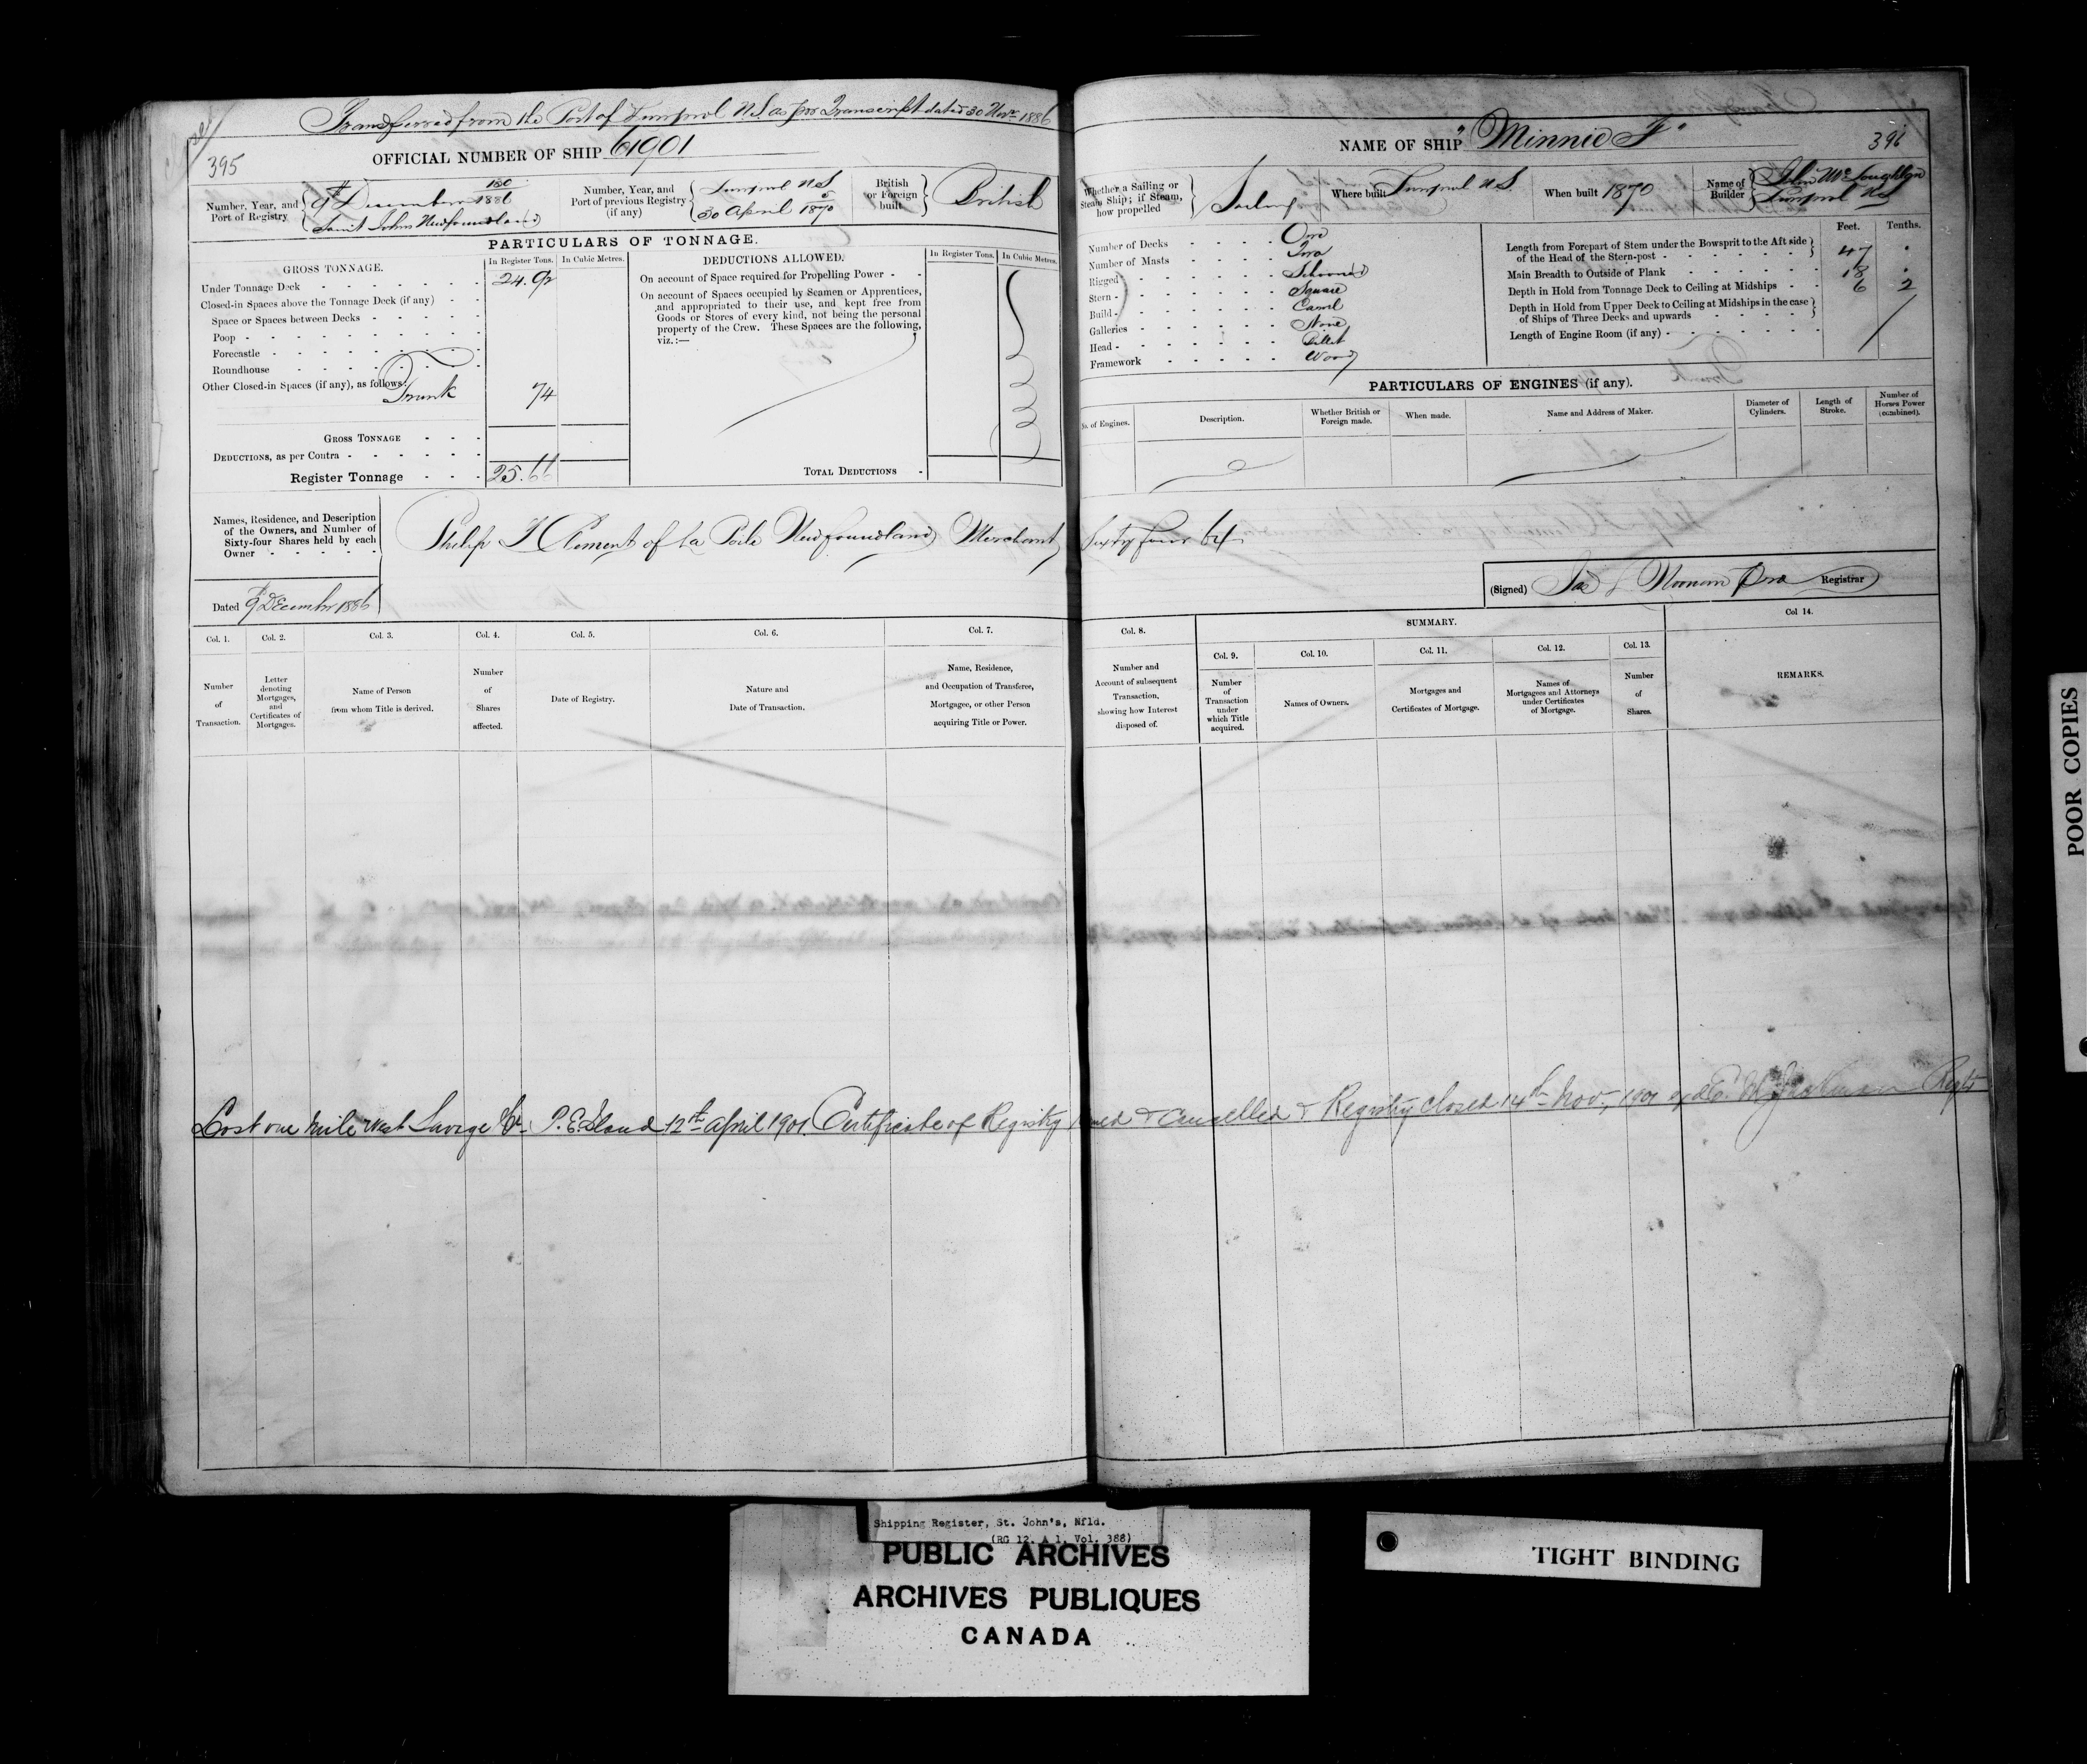 Transferred from the Port of Liverpool N.S. as per Transcript dated 30 Novr 1886
395
OFFICIAL NUMBER OF SHIP 61901
Number, Year, and Port of Registry
9th December 130/1886
Saint Johns Newfoundland
Number, Year, and Port of previous Registry (if any)
Liverpool N.S.
30 April 1870
British or Foreign built
British
PARTICULARS OF TONNAGE.
GROSS TONNAGE.
In Register Tons.
In Cubic Metres.
Under Tonnage Deck 24.92
Closed-in Spaces above the Tonnage Deck (if any)
Space or Spaces between Decks
Poop
Forecastle
Roundhouse
Other Closed-in Spaces (if any), as follows:
Trunk 74
GROSS TONNAGE
DEDUCTIONS, as per Contra
Register Tonnage 25.66
DEDUCTIONS ALLOWED.
In Register Tons.
In Cubic Metres.
On account of Space required for Propelling Power
On account of Spaces occupied by Seamen or Apprentices,
and appropriated to their use, and kept free from
Goods or Stores of every kind, not being the personal
property of the Crew. These Spaces are the following,
viz.:—
TOTAL DEDUCTIONS
Names, Residence, and Description
of the Owners, and Number of
Sixty-four Shares held by each
Owner
Philip H Clement of La Poile Newfoundland Merchant Sixty four 64
Dated 9 December 1886
Col. 1. Number of Transaction.
Col. 2. Letter denoting Mortgages, and Certificates of Mortgages.
Col. 3. Name of Person from whom Title is derived.
Col. 4. Number of Shares affected.
Col. 5. Date of Registry.
Col. 6. Nature and Date of Transaction.
Col. 7. Name, Residence, and Occupation of Transferee, Mortgagee, or other Person acquiring Title or Power.
NAME OF SHIP "Minnie F"
396
Whether a Sailing or Steam Ship; if Steam, how propelled
Sailing
Where built Liverpool N.S.
When built 1870
Name of Builder
John McLoughlin
Liverpool NS
Number of Decks One
Number of Masts Two
Rigged Schooner
Stern Square
Build Carvel
Galleries None
Head Billet
Framework Wood
Feet. Tenths.
Length from Forepart of Stem under the Bowsprit to the Aft side
of the Head of the Stern-post 47 .
Main Breadth to Outside of Plank 18 .
Depth in Hold from Tonnage Deck to Ceiling at Midships 6 2
Depth in Hold from Upper Deck to Ceiling at Midships in the case
of Ships of Three Decks and upwards
Length of Engine Room (if any)
PARTICULARS OF ENGINES (if any).
No. of Engines.
Description.
Whether British or Foreign made.
When made.
Name and Address of Maker.
Diameter of Cylinders.
Length of Stroke.
Number of Horses Power (combined).
(Signed) Jas L Noonan Registrar
Col. 8. Number and Account of subsequent Transaction, showing how Interest disposed of.
SUMMARY.
Col. 9. Number of Transaction under which Title acquired.
Col. 10. Names of Owners.
Col. 11. Mortgages and Certificates of Mortgage.
Col. 12. Names of Mortgagees and Attorneys under Certificates of Mortgage.
Col. 13. Number of Shares.
Col 14. REMARKS.
Lost one mile West Savage Hr. P.E. Island 12th April 1901. Certificate of Registry & Cancelled & Registry closed 14th Nov., 1901
Shipping Register, St. John's, Nfld.
(RG 12, A 1, Vol. 388)
PUBLIC ARCHIVES
ARCHIVES PUBLIQUES
CANADA
TIGHT BINDING
POOR COPIES